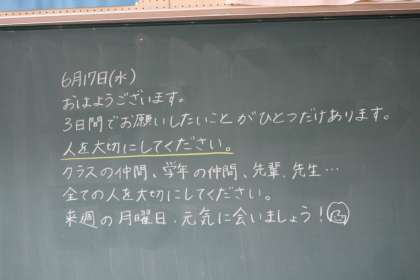 6月17日(水)
おはようございます。
3日間でお願いしたいことがひとつだけあります。
人を大切にしてください。
クラスの仲間、学年の仲間、先輩、先生…
全ての人を大切にしてください。
来週の月曜日、元気に会いましょう!